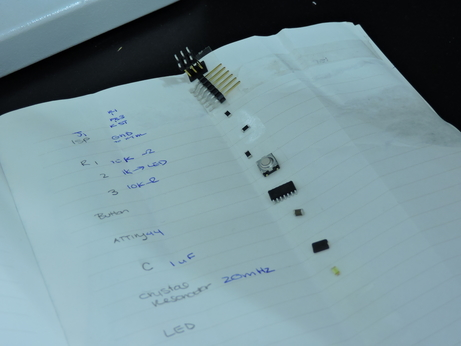 J1
ISP GND
R1 10K
2 1K → LED
3 10K-R
Button
ATtiny44
C 1uF
Resonator 20mHz
LED